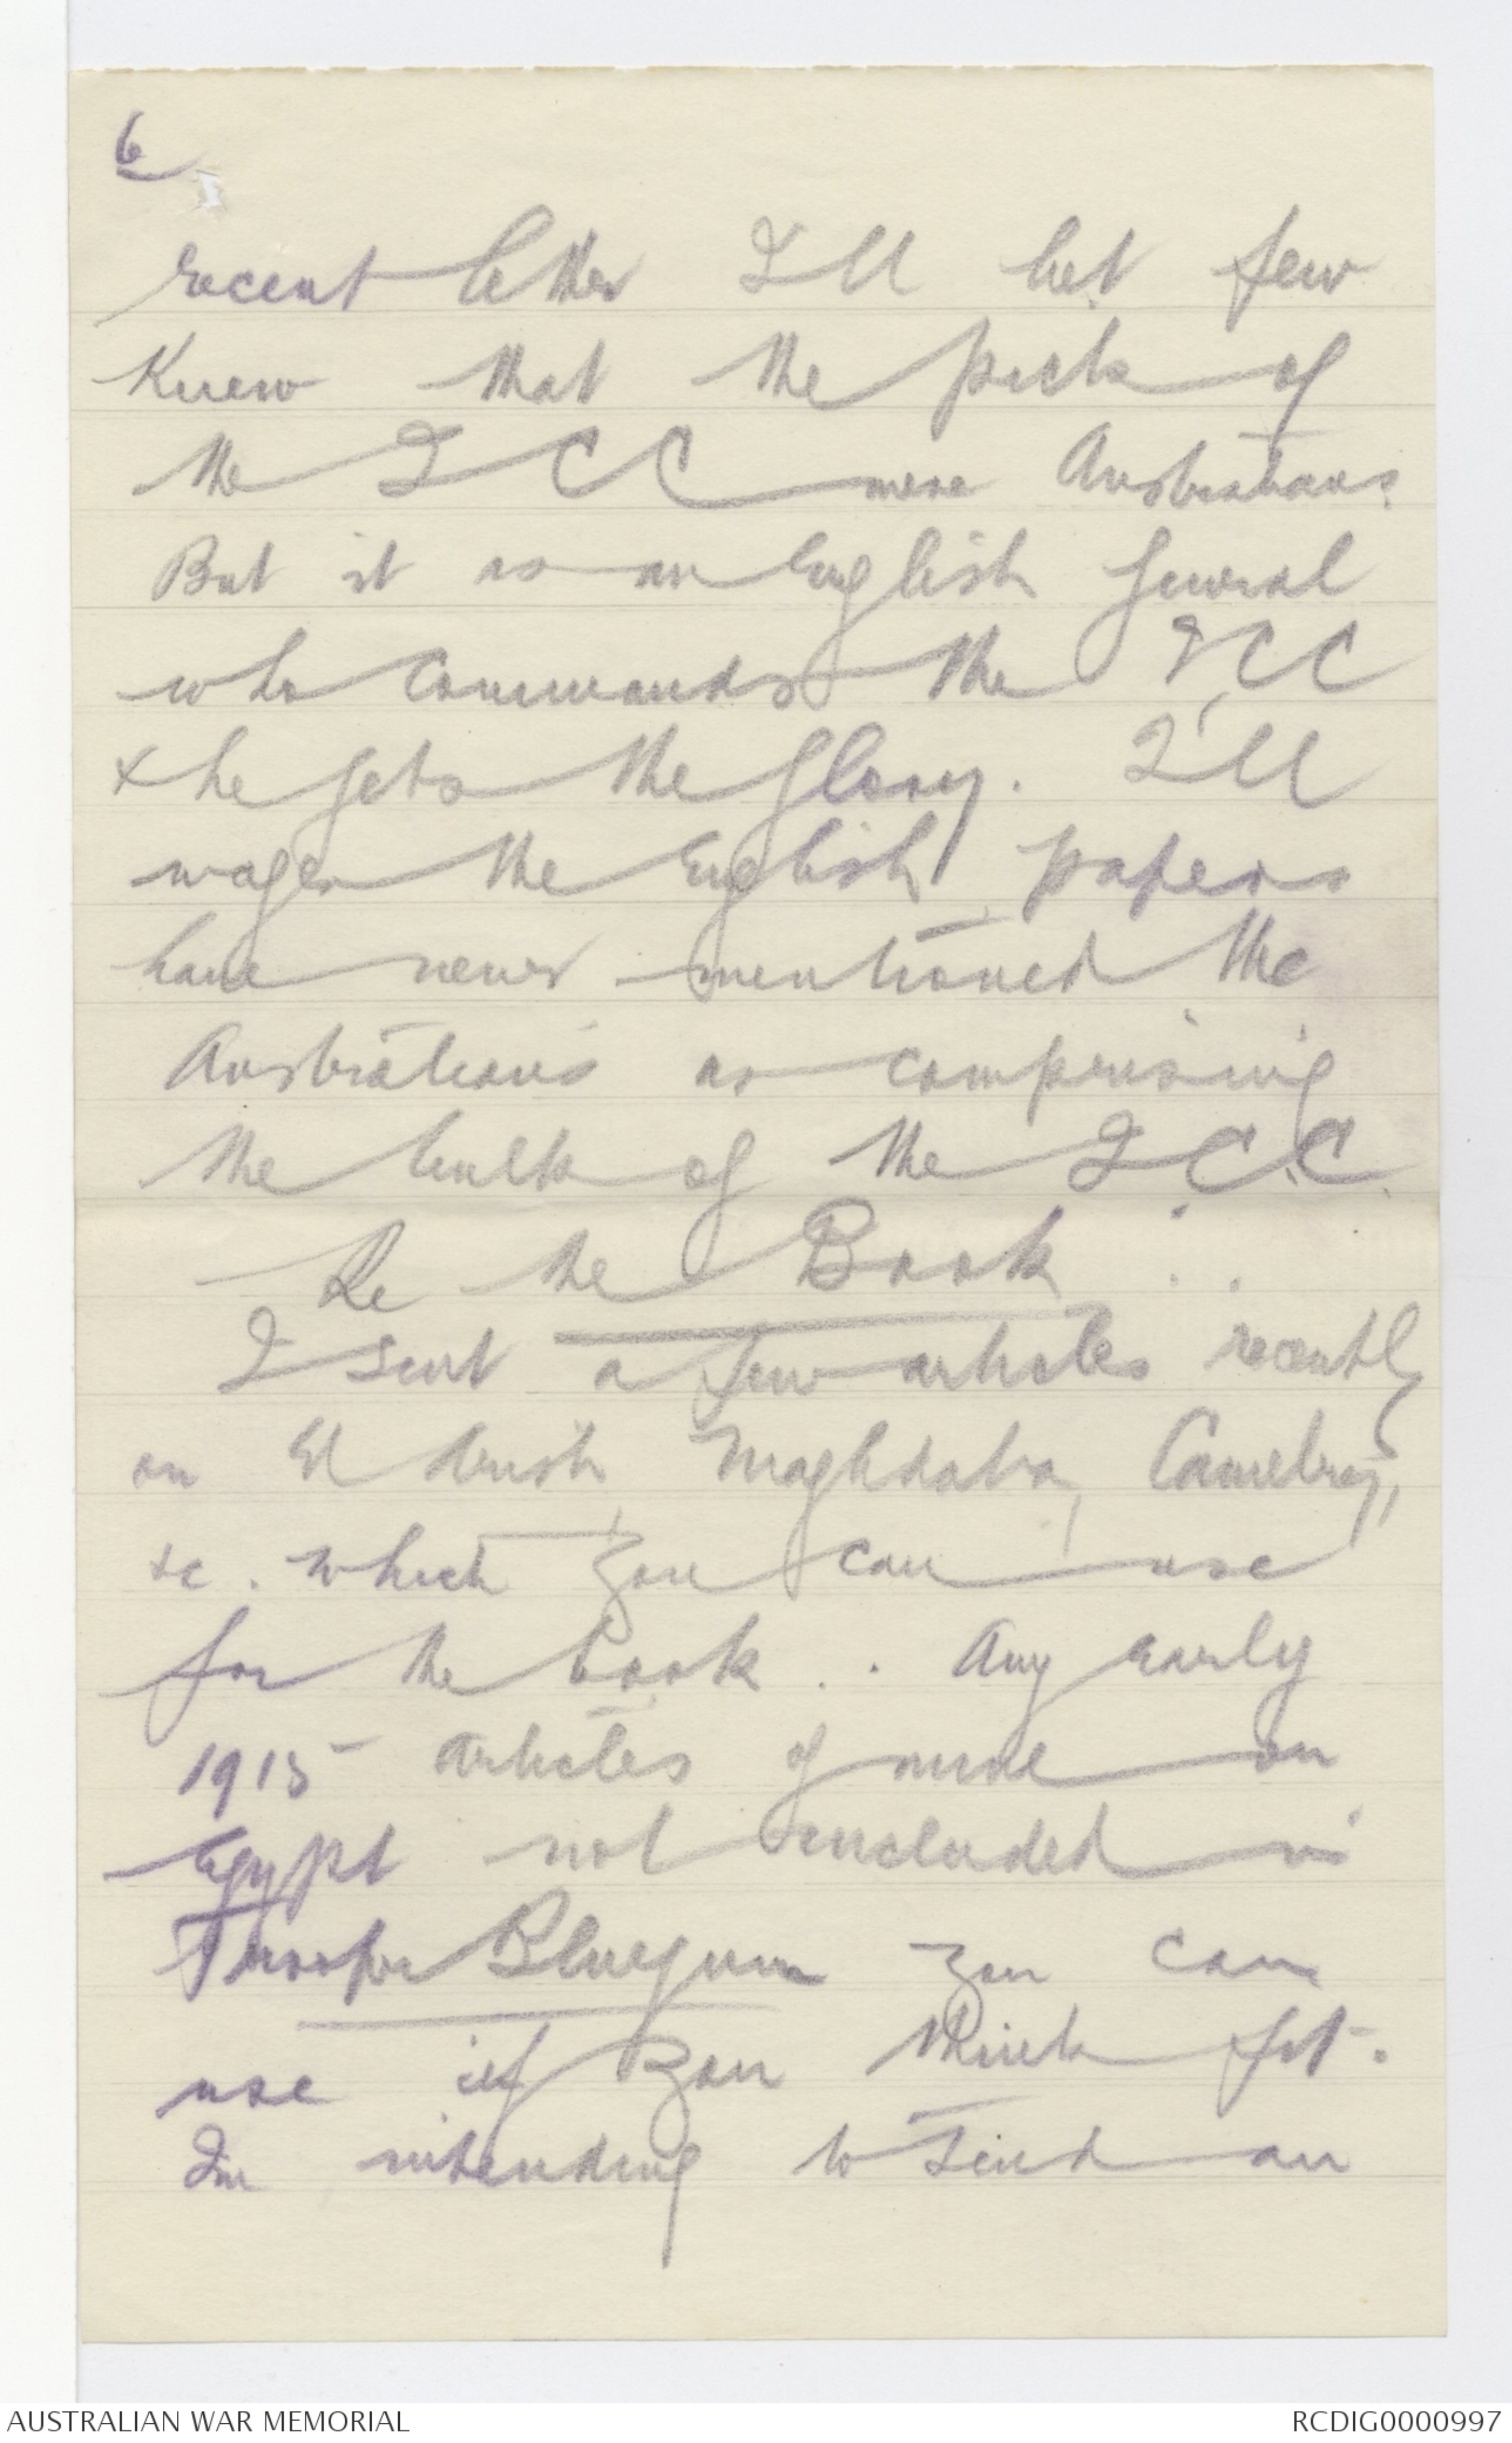 6
recent letter I'll bet few
knew that the pick of
the I C C were Australians.
But it is an English General
who commands the I C C
& he gets the glory. I'll
wager the English papers
have never mentioned the
Australians as comprising
the bulk of the I. C. C.
Re the Book . .
I sent a few articles recently
on El Arish, Maghdaba, Camelry,
&c. which you can use
for the book. Any early
1915 articles of mine on
Egypt not included in
Trooper Bluegum you can
use if you think fit.
Im intending to send an
AUSTRALIAN WAR MEMORIAL
RCDIG0000997